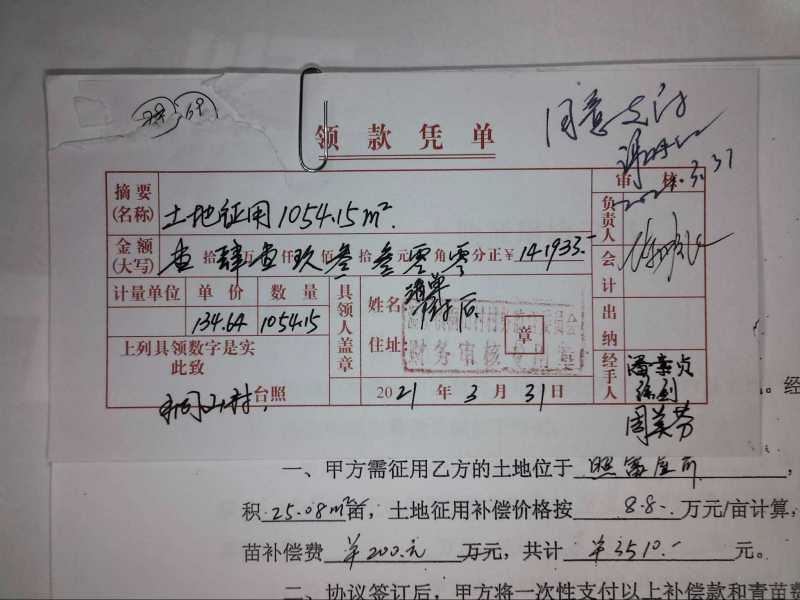 69
同意支付
领款凭单
2021.3.31
审核
摘要(名称) 土地征用1054.15m².
金额(大写) 壹拾肆万壹仟玖佰叁拾叁元零角零分正¥141933.-
计量单位 单价 数量
134.64 1054.15
上列具领数字是实
此致
台照
具领人盖章
姓名: 清单附后.
住址:
财务审核专用章
2021年3月31日
负责人
会计
出纳
经手人
周美芳
。经
一、甲方需征用乙方的土地位于
积25.08m²亩，土地征用补偿价格按8.8-万元/亩计算，
苗补偿费¥200.元万元，共计¥3510.-元。
二、协议签订后，甲方将一次性支付以上补偿款和青苗费